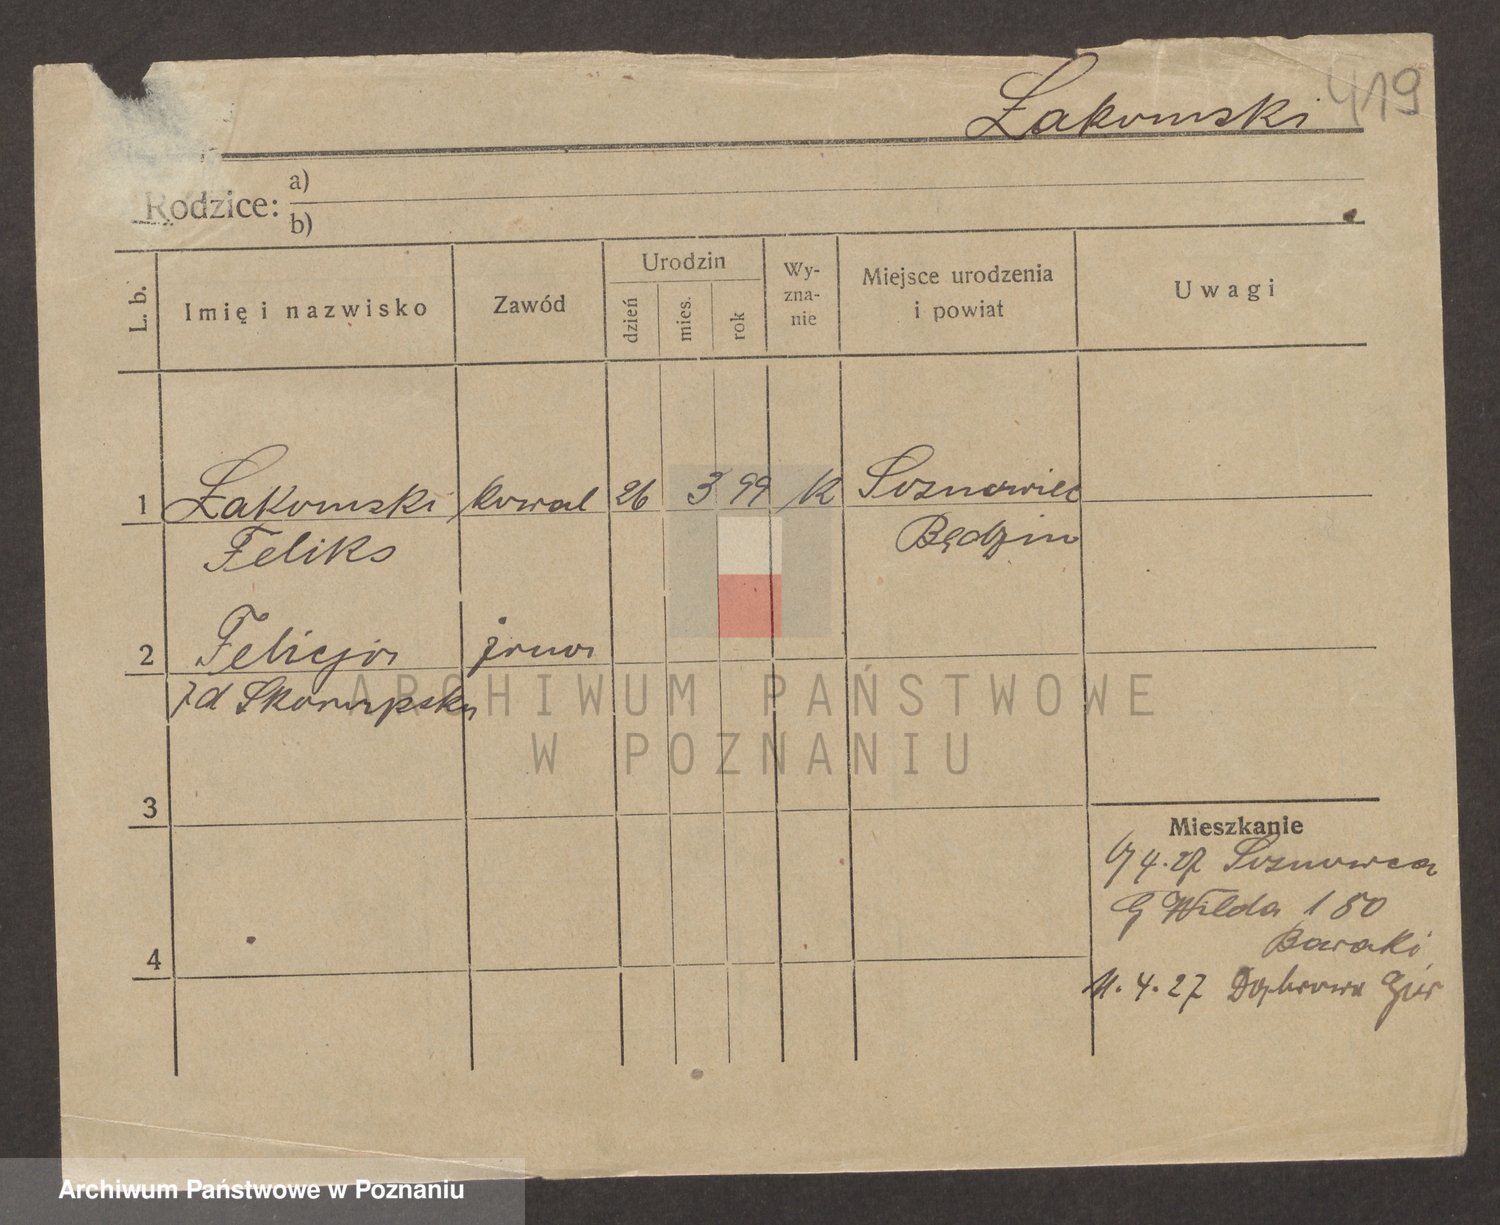 419
Łakomski
Rodzice: a)
b)
L. b. Imię i nazwisko Zawód Urodzin dzień mies. rok Wy-zna-nie Miejsce urodzenia i powiat Uwagi
1 Łakomski kowal 26 3 99 K Sosnowiec
Feliks Będzin
2 Felicja żona
zd Skorupska
3
Mieszkanie
4.27 Sosnowca
G Wilda 180
Baraki
4
11.4.27 Dąbrowa Gór
ARCHIWUM PAŃSTWOWE
W POZNANIU
Archiwum Państwowe w Poznaniu